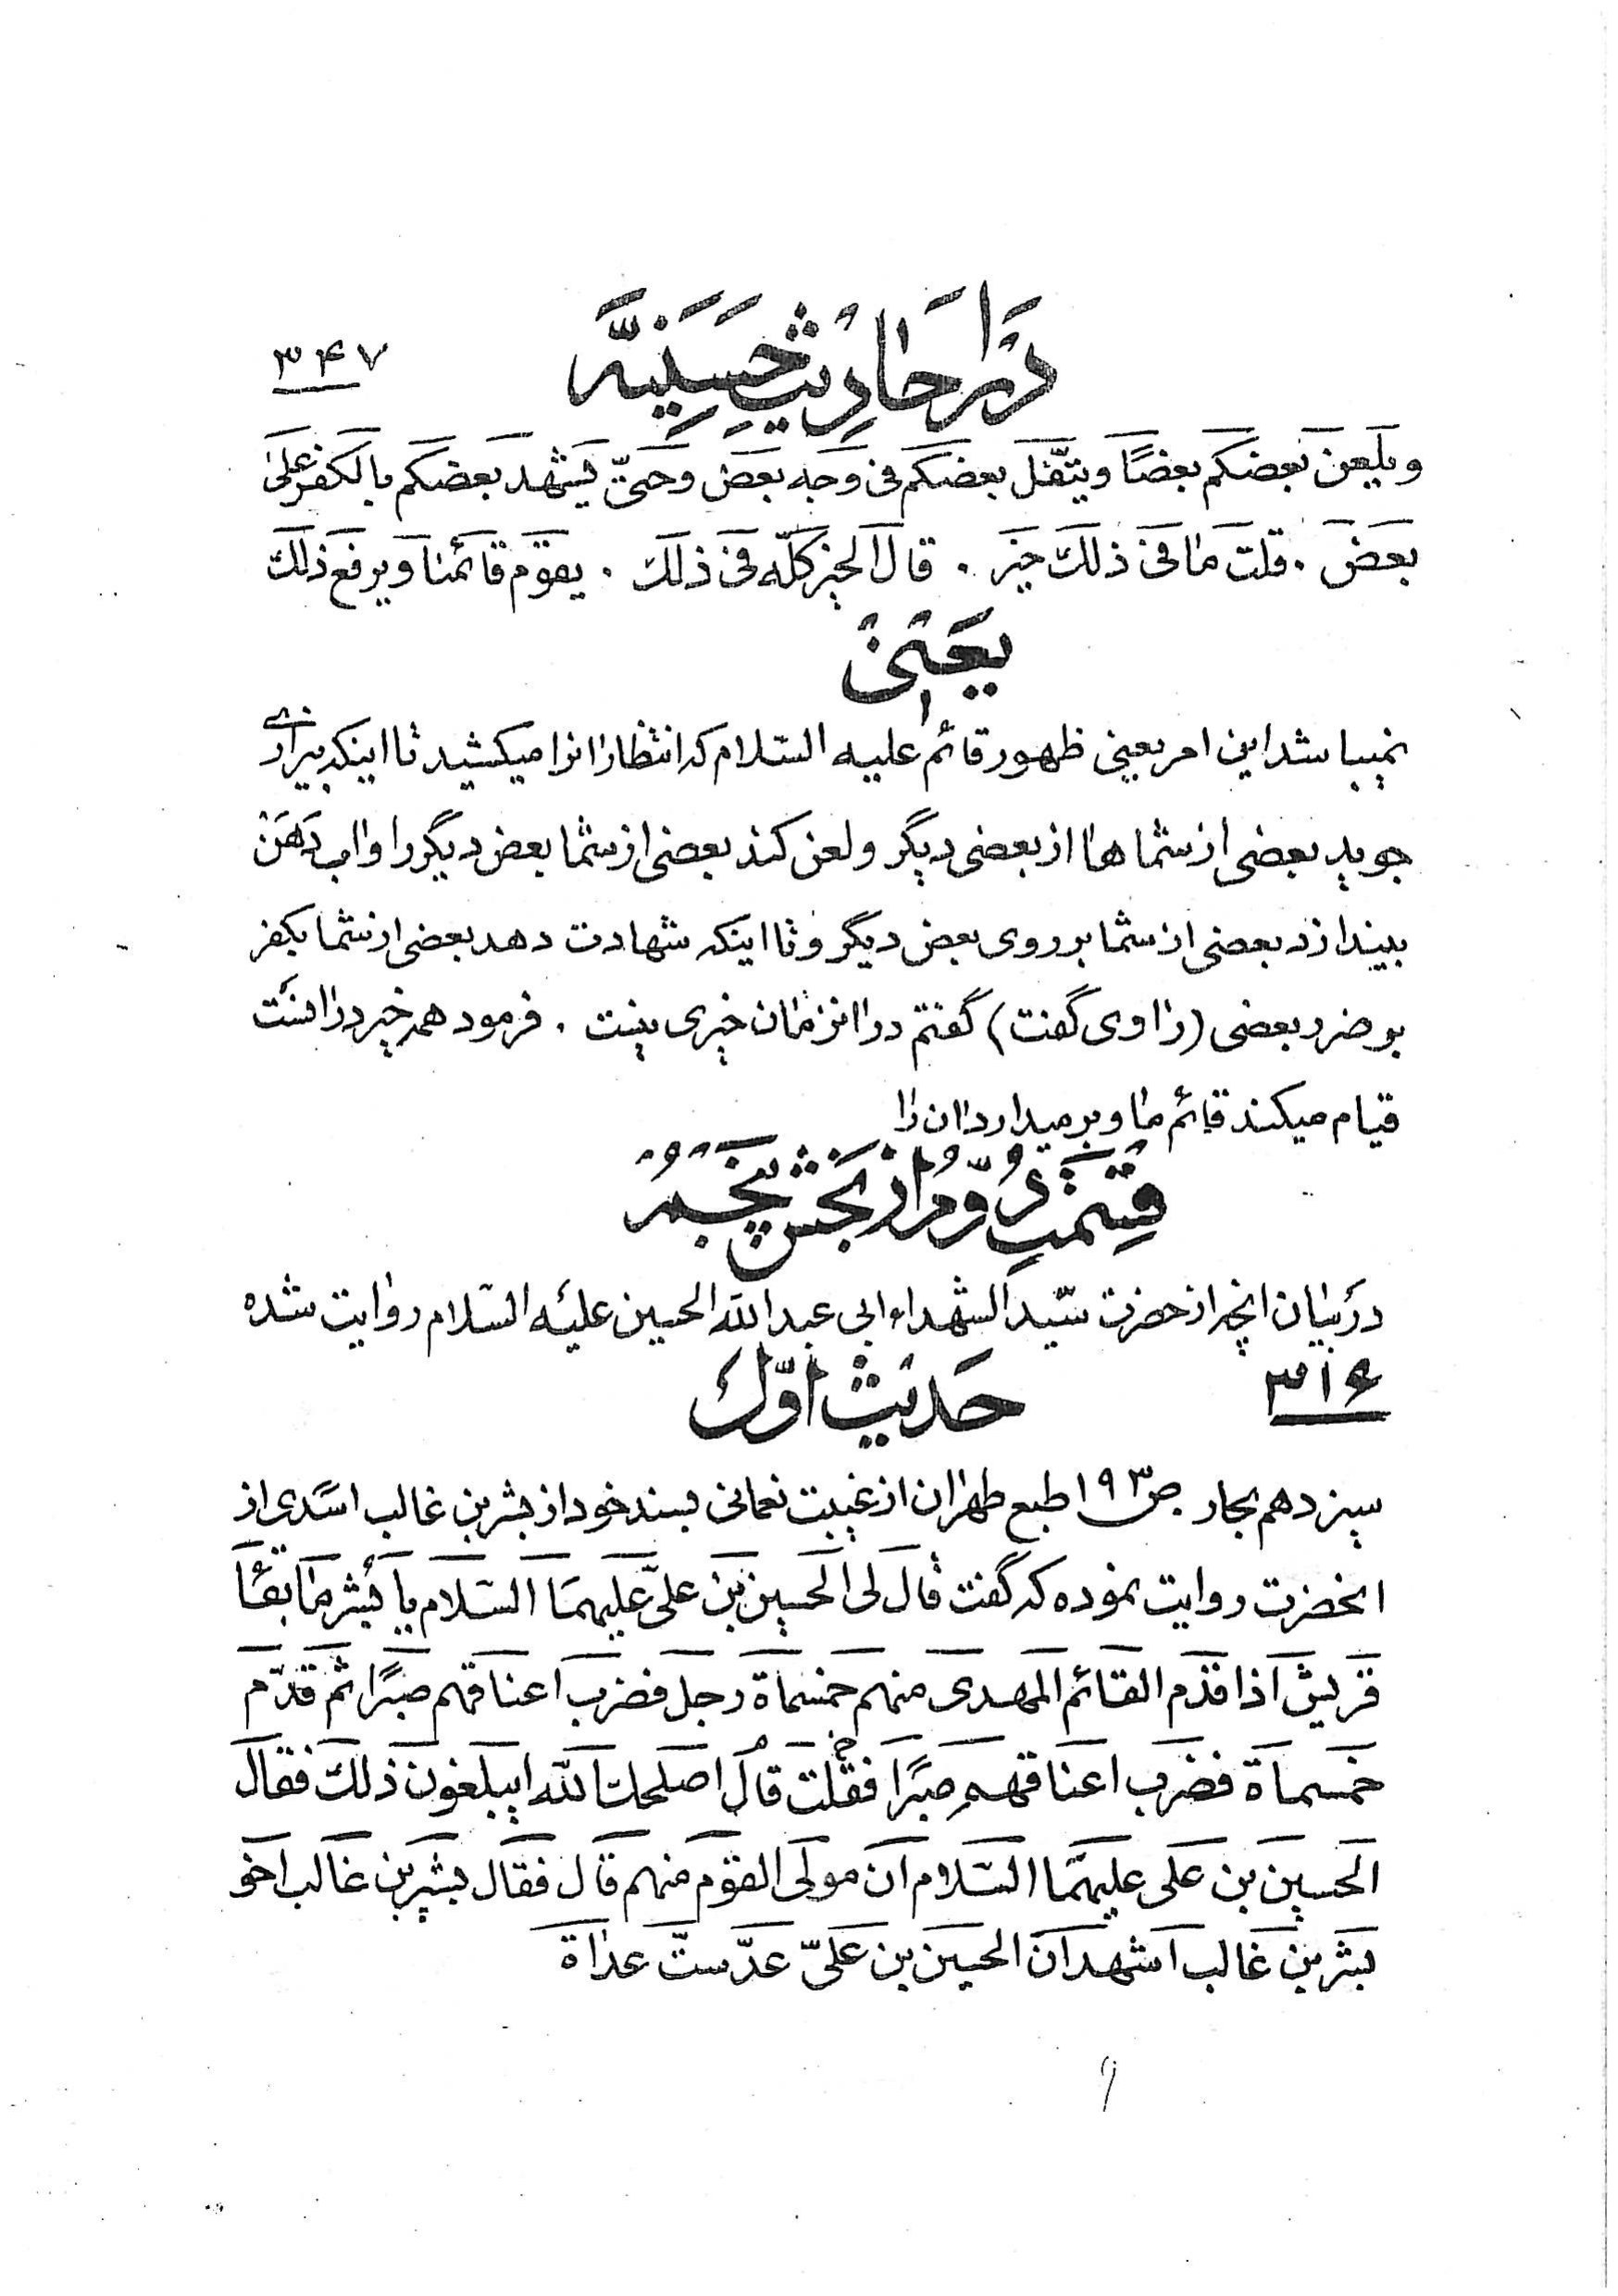 در احادیث حسینیه
۳۴۷
ویلعن بعضکم بعضًا ویتفّل بعضکم فی وجه بعض وحتّی یشهد بعضکم بالکفر علی
بعض . قلت ما فی ذلک خیر . قال الخیر کلّه فی ذلک . یقوم قائمنا ویرفع ذلک
یعنی
نمیباشد این امر یعنی ظهور قائم علیه السّلام که انتظار انرا میکشید تا اینکه بیزاری
جوید بعضی از شماها از بعضی دیگر و لعن کند بعضی از شما بعض دیگر را و اب دهن
بیندازد بعضی از شما بر روی بعض دیگر و تا اینکه شهادت دهد بعضی از شما بکفر
بر ضرر بعضی (راوی گفت) گفتم در انزمان خیری نیست . فرمود همه خیر در انست
قیام میکند قائم ما و بر میدارد ان را
قسمت دوّم از بخش پنجم
در بیان انچه از حضرت سیّد الشهداء ابی عبد الله الحسین علیه السّلام روایت شده
حدیث اوّل
۳۱۶
سیزدهم بحار ص ۱۹۳ طبع طهران از غیبت نعمانی بسند خود از بشر بن غالب اسدی از
انحضرت روایت نموده که گفت قال لی الحسین بن علیّ علیهما السّلام یا بشر ما بقاُ
قریش اذا قدّم القائم المهدی منهم خمسماة رجل فضرب اعناقهم صبرًا ثم قدّم
خمسماة فضرب اعناقهم صبرًا فقلت قال اصلحک الله ایبلغون ذلک فقال
الحسین بن علی علیهما السّلام ان مولی القوم منهم قال فقال بشیر بن غالب اخو
بشر بن غالب اشهد ان الحسین بن علیّ عدّ ستّ عداة